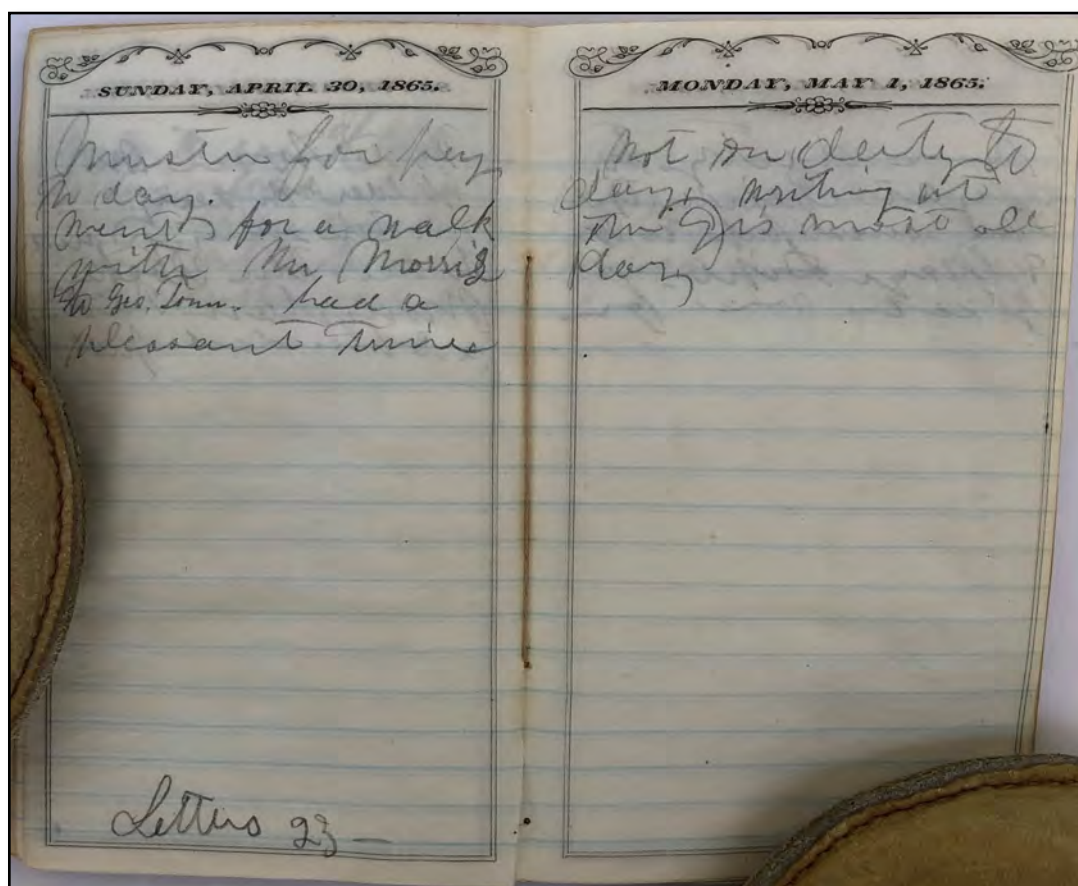 SUNDAY, APRIL 30, 1865.
Muster for pay
to day.
Went for a walk
with Mr Morris
to Geo. Town. had a
pleasant time
Letters 23 —
MONDAY, MAY 1, 1865.
Not on duty to
day, writing at
the most all
day